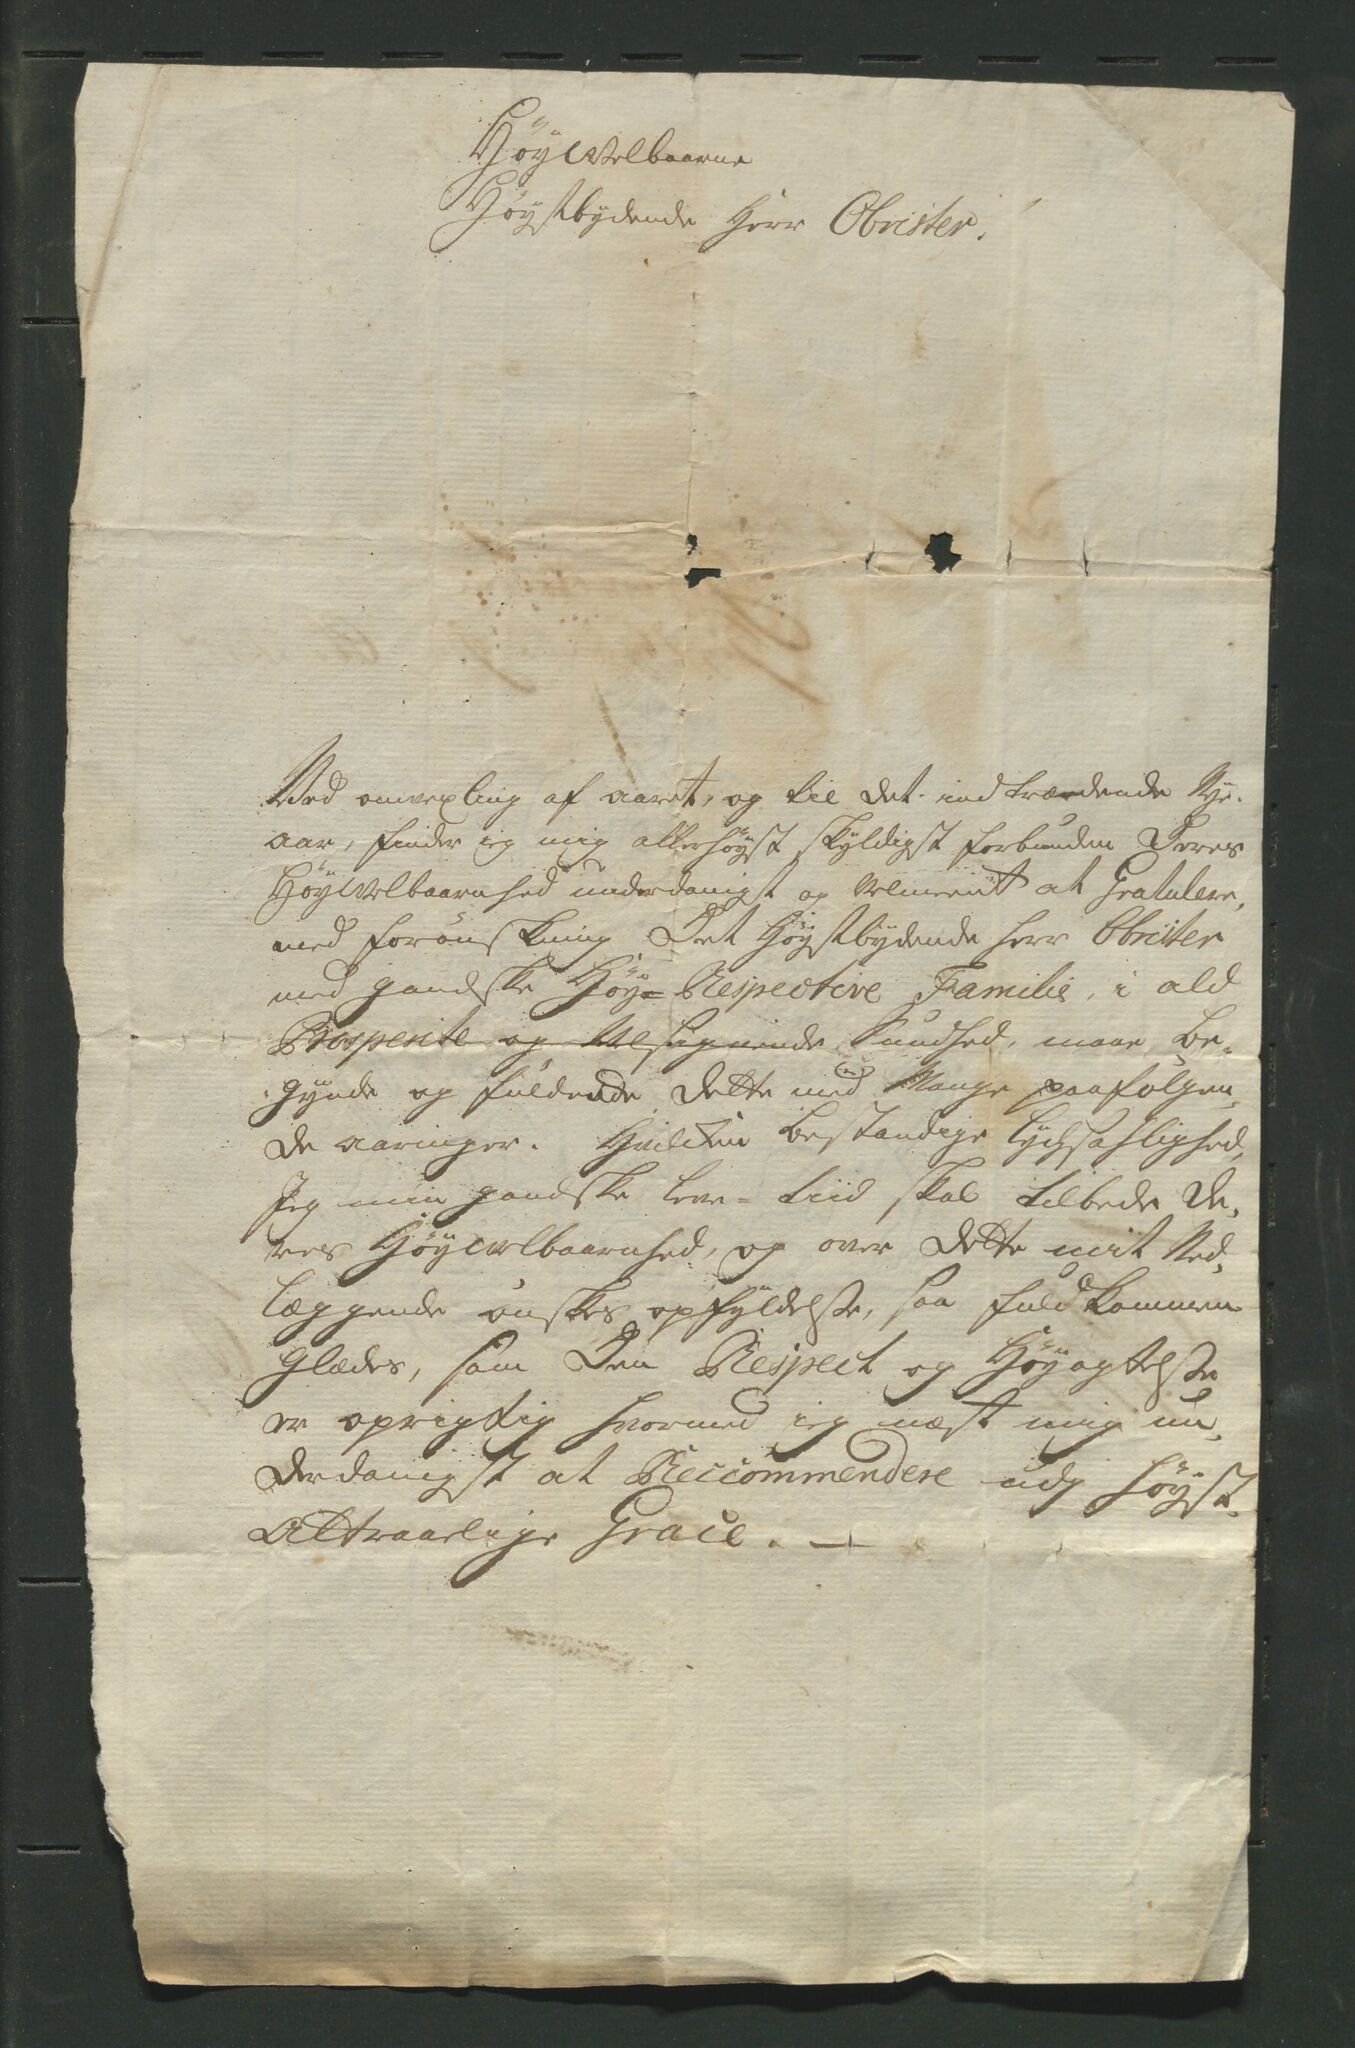 Höÿwelbaarne
Höÿstbydende Herr Obrister.
Ved omvexling af aaret, og til det indtrædende Nye-
aar, finder ieg mig allerhöÿst skyldigst forbunden Deres
Höÿwelbaarnhed underdanigst og velmeent at Gratulere,
med forönskning Det Höÿstbydende Herr Obrister
med gandske Höÿ= Respective Familie, i ald
Prosperite og Velsignende Sundhed, maae be-
gynde og fuldende dette med Mange paafölgen-
de aaringer. Hvilken bestandige lychsahlighed,
Jeg min gandske leve-tiid skal tilbede De-
res Höÿwelbaarnhed, og over dette mit Ned-
læggende önskes opfyldelse, saa fuldkommen
Glædes, som Den Respect og Höÿagtelse
er oprigtig hvormed ieg næst mig un-
derdanigst at Reccommendere udj Höÿst-
Attraaelige Grace. —